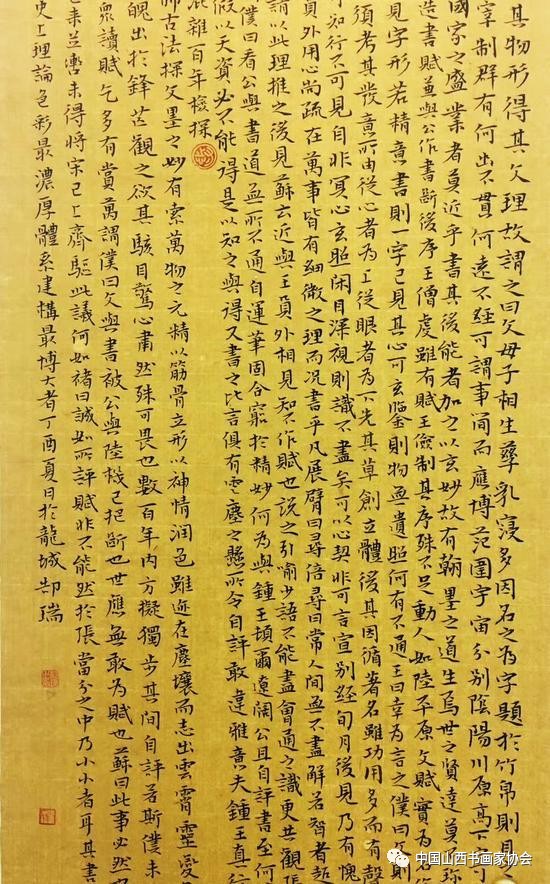 其物形得其文理故謂之曰文母子相生孳乳寖多因名之為字題於竹帛則
宰制群有何幽不貫何遠不經可謂事簡而應博范圍宇宙分別陰陽川原高下之可
國家之盛業者莫近乎書其後能者加之以玄妙故有翰墨之道生焉世之賢達莫不珍
造書賦並與公作書斷後序王僧虔雖有賦王儉制其序殊不足動人如陸平原文賦實為名
見字形若精意書則一字已見其心可玄鑒則物無遺照何有不通王曰幸為言之僕曰文則
須考其發意所由從心者為上從眼者為下先其草創立體後其因循著名雖功用多而有聲
可知行不可見自非冥心玄照閑目深視則識不盡矣可以心契非可言宣別經旬月後見乃有愧
員外用心尚疏在萬事皆有細微之理而況書乎凡展臂曰尋倍尋曰常人間無不盡解若智者
請以此理推之後見蘇云近與王員外相見知不作賦也說之引喻少語不能盡會通之識更共觀張
僕曰看公與書道無所不通自運筆固合窮於精妙何為與鍾王頓爾遼闊公且自評書至何
假以天資必不能得是以知之與得又書之比言俱有雲塵之懸所令自評敢違雅意夫鍾王真行
混雜百年檢探
師古法探文墨之妙有索萬物之元精以筋骨立形以神情潤色雖迹在塵壤而志出雲霄靈變
魄出於鋒芒觀之欲其駭目驚心肅然殊可畏也數百年內方擬獨步其間自評若斯僕未
眾讀賦乞多有賞萬謂僕曰文與書被公與陸機已把斷也世應無敢為賦也蘇曰此事必然
未得將宋已上齊驅此議何如褚曰誠如所評賦非不能然於張當分之中乃小小者耳其書
史上理論色彩最濃厚體系建構最博大者丁酉夏日於龍城郜瑞
中国山西书画家协会